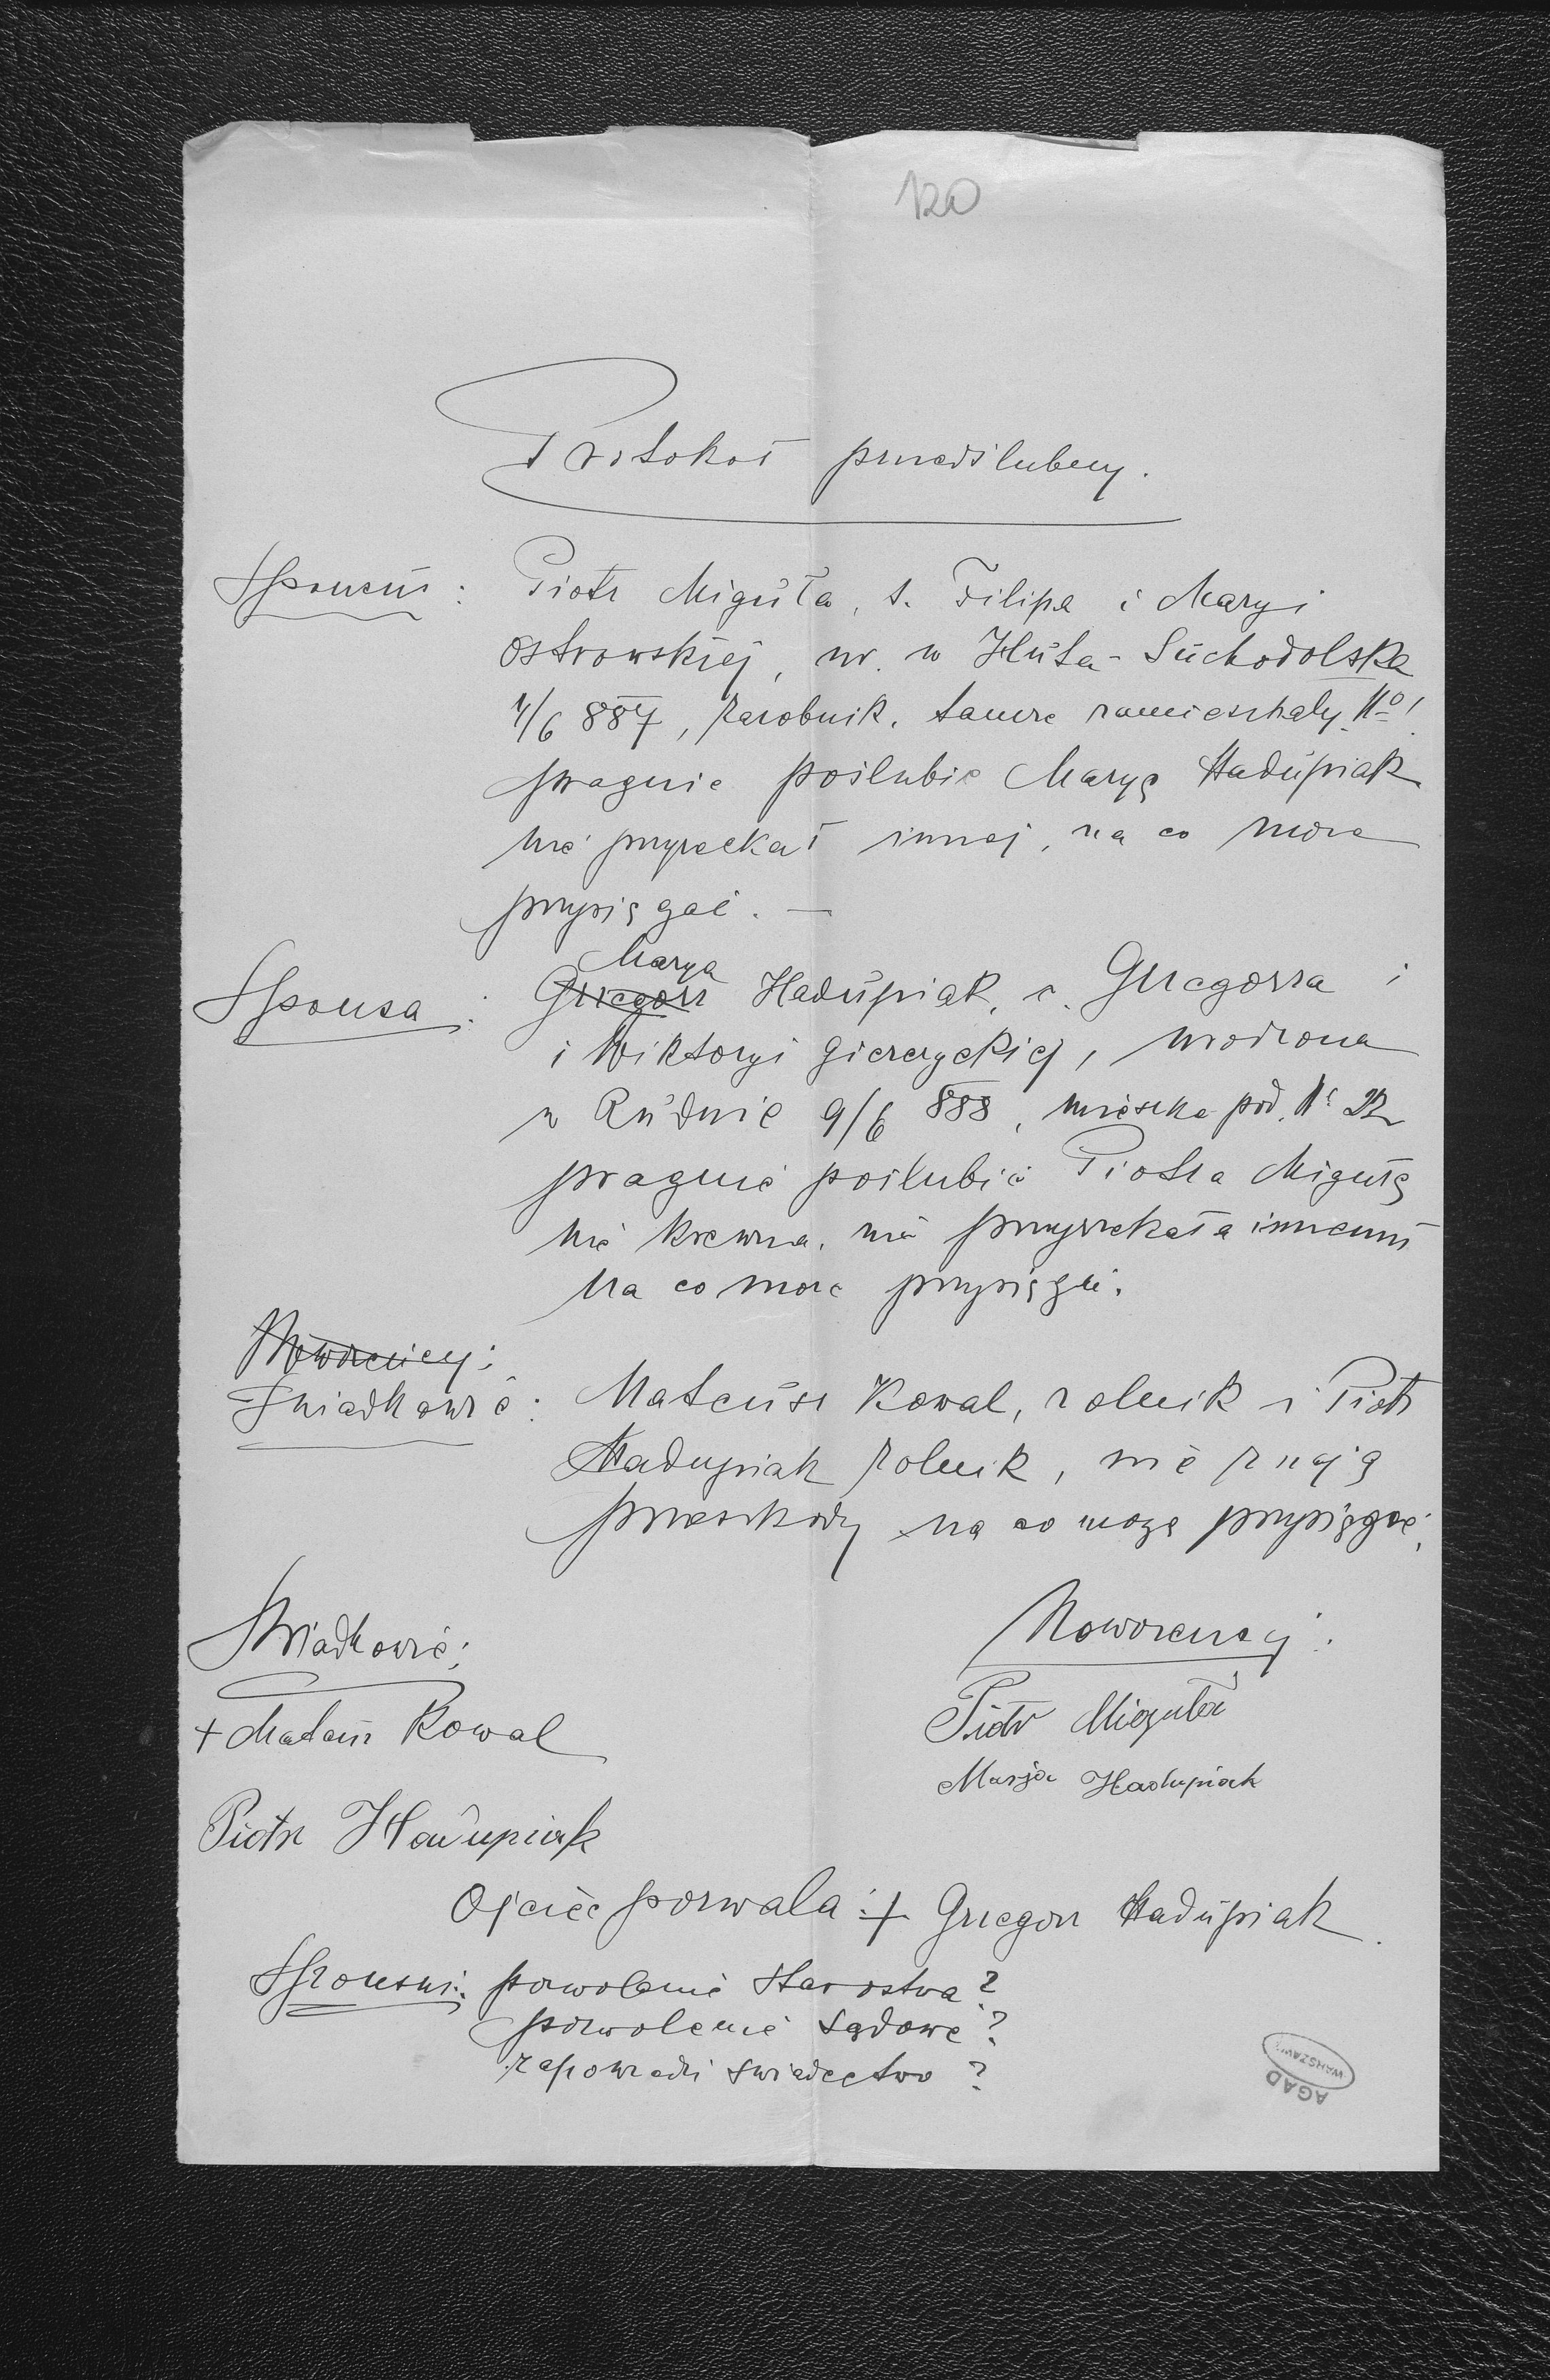 120
Protokoł przedślubny.
Sponsus: Piotr Miguła, s. Filipa i Maryi
Ostrowskiej, ur. w Huta-Suchodolska
1/6 887, zarobnik, tamże zamieszkały No 1
pragnie poślubić Maryę Hadupiak
nie przyrzekał innej, na co może
przysięgać. —
Marya
Sponsa: Grzegorz Hadupiak, c. Grzegorza i
i Wiktoryi Gierczyckiej, urodzona
w Rudnie 9/6 888, mieszka pod No 22
pragnie poślubić Piotra Migułę
nie krewna, nie przyrzekała innemu
na co może przysięgać.
Nowożeńcy:
Świadkowie: Mateusz Kowal, rolnik i Piotr
Hadupiak rolnik, nie znają
przeszkody na co mogą przysięgać.
Świadkowie: Nowożeńcy:
+ Mateusz Kowal Piotr Miguła
Marja Hadupiak
Piotr Hadupiak
Ojciec pozwala: + Grzegorz Hadupiak.
Sponsus: pozwolenie Starostwa?
pozwolenie sądowe?
zapowiedzi świadectwo?
AGAD
WARSZAWA